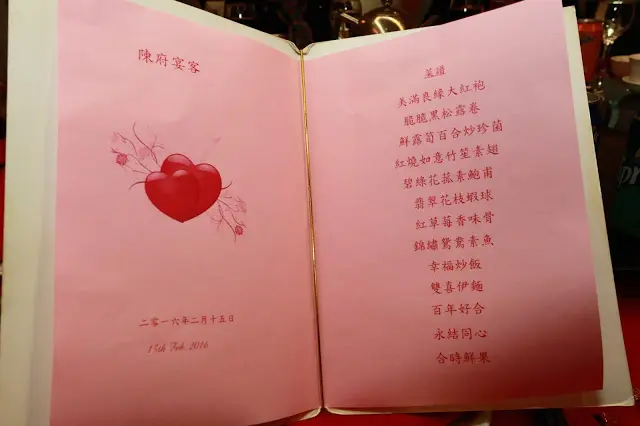 陳府宴客
二零一六年二月十五日
15th Feb, 2016
菜譜
美滿良緣大紅袍
脆脆黑松露卷
鮮露筍百合炒珍菌
紅燒如意竹笙素翅
碧綠花菇素鮑甫
翡翠花枝蝦球
紅草莓香味骨
錦繡鴛鴦素魚
幸福炒飯
雙喜伊麵
百年好合
永結同心
合時鮮果